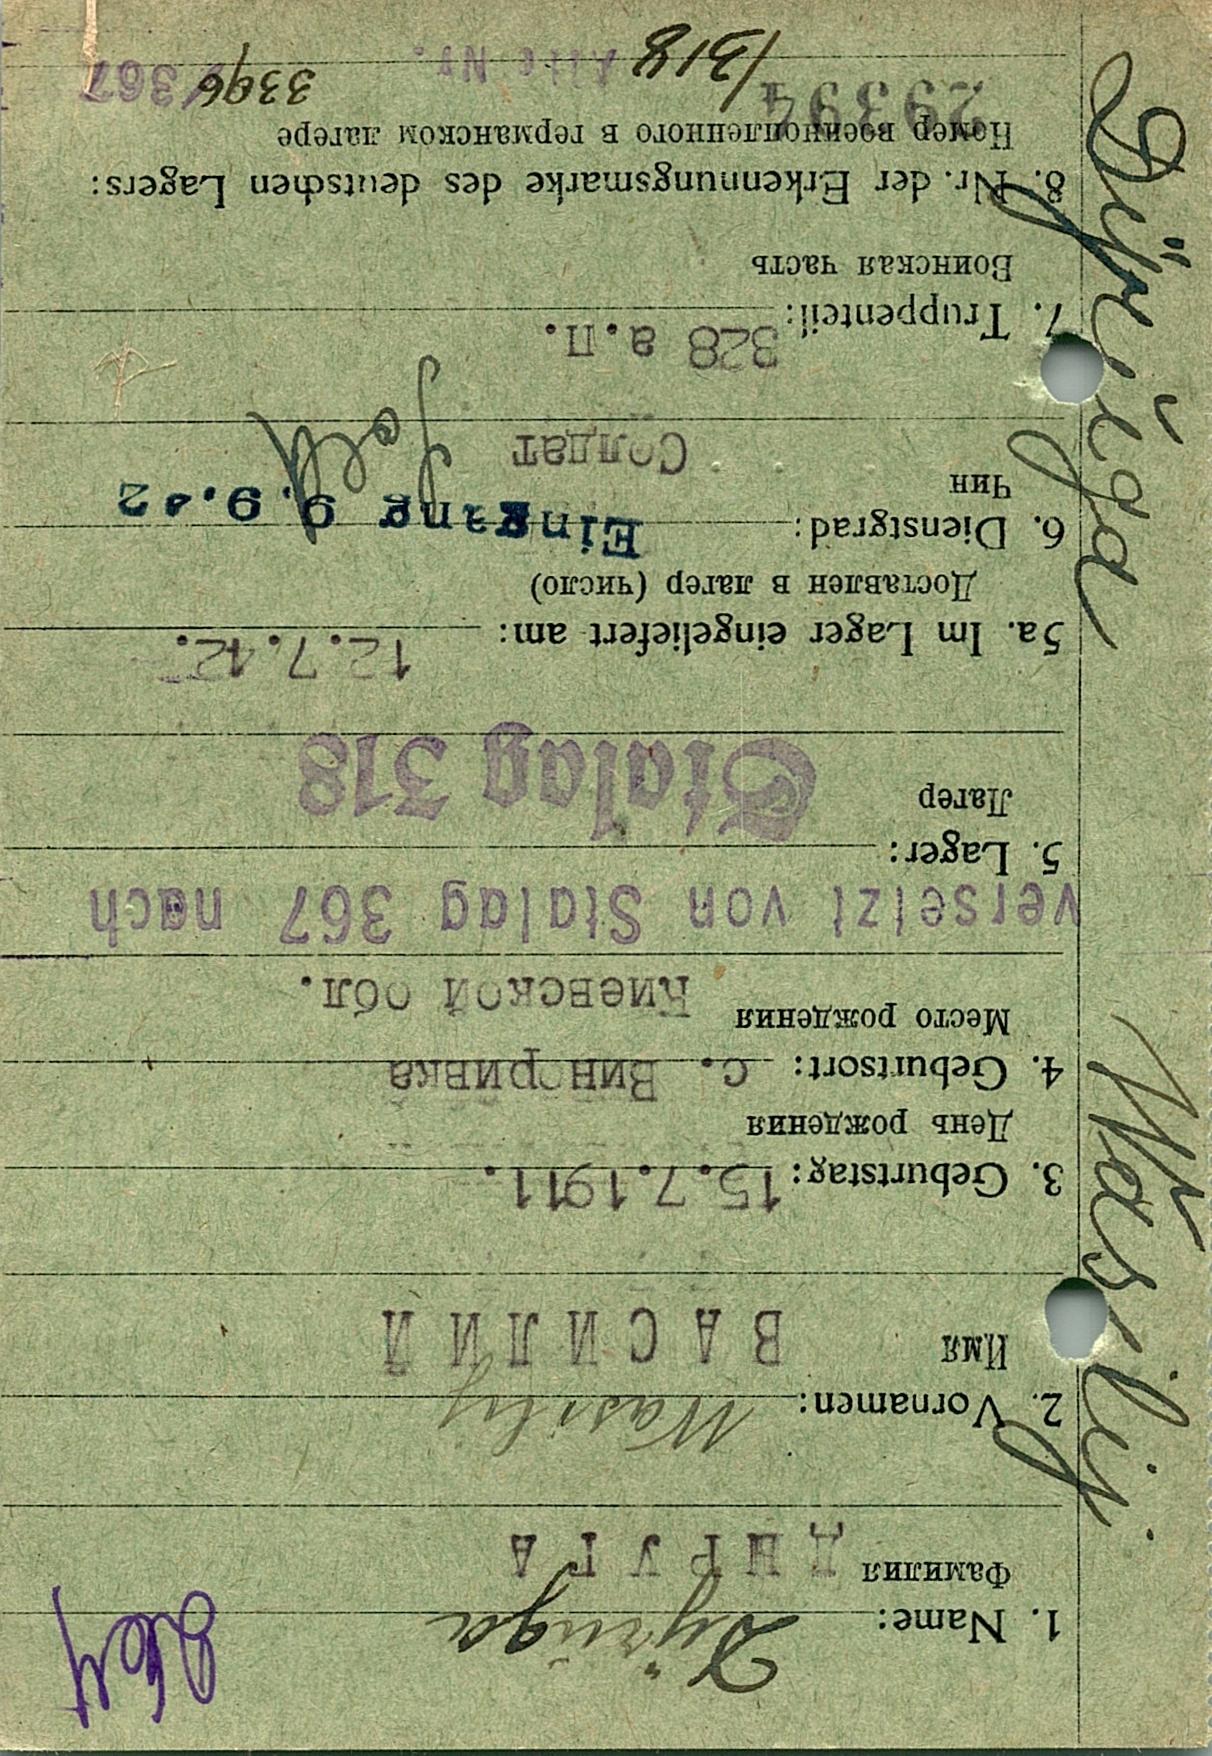 1. Name: Dyruga
Фамилия ДЫРУГА
2. Vornamen: Wasily
Имя ВАСИЛИЙ
3. Geburtstag: 15.7.1911.
День рождения
4. Geburtsort: с. Винсривка
Место рождения Киевской обл.
versetzt von Stalag 367 nach
5. Lager:
Лагер Stalag 318
5a. Im Lager eingeliefert am: 12.7.42.
Доставлен в лагер (число)
6. Dienstgrad: Eingang 9.9.42
Чин Солдат
7. Truppenteil: 328 а.п.
Воинская часть
8. Nr. der Erkennungsmarke des deutschen Lagers:
Номер военнопленного в германском лагере
29394 / 318 Alte Nr. 3396/367
Dyruga Wasilij